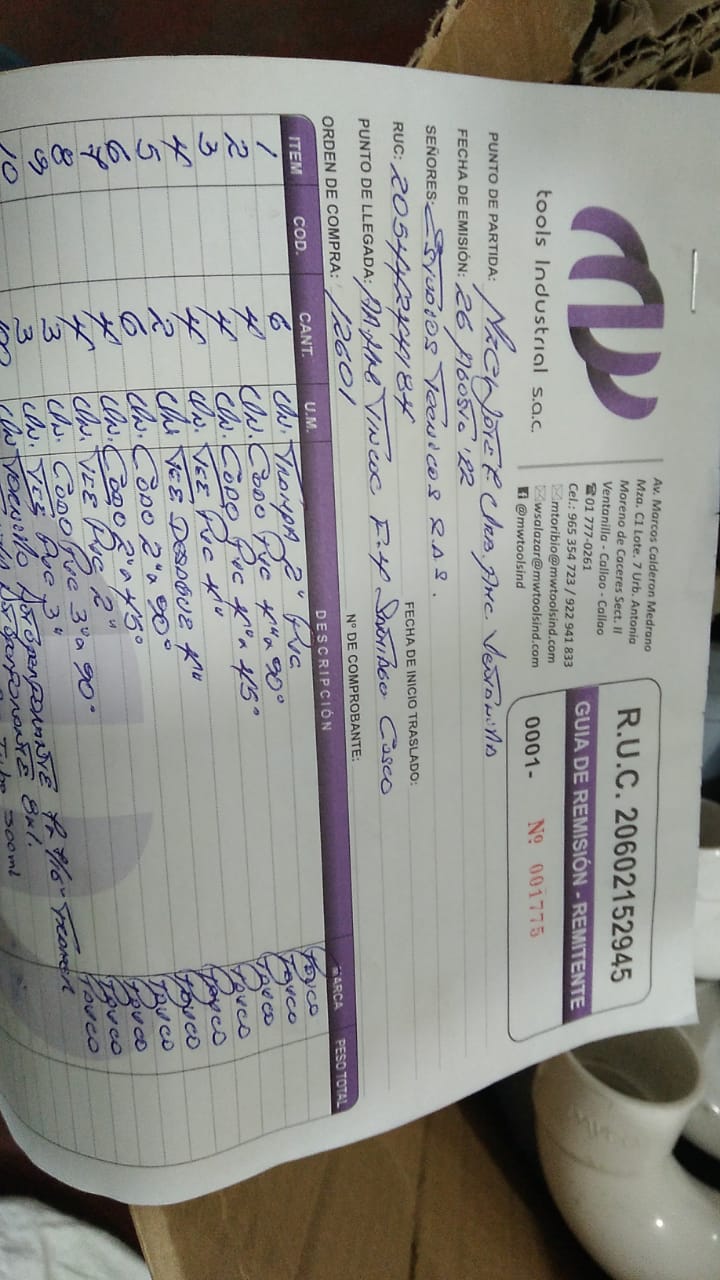 MW
tools Industrial s.a.c.
Av. Marcos Calderon Medrano
Mza. C1 Lote. 7 Urb. Antonia
Moreno de Caceres Sect. II
Ventanilla - Callao - Callao
☎01 777-0261
Cel.: 965 354 723 / 922 941 833
mtoribio@mwtoolsind.com
wsalazar@mwtoolsind.com
@mwtoolsind
R.U.C. 20602152945
GUIA DE REMISIÓN - REMITENTE
0001- Nº 001775
PUNTO DE PARTIDA:
FECHA DE EMISIÓN: 26 Agosto '22
FECHA DE INICIO TRASLADO:
SEÑORES: Servicios Tecnicos
RUC:
PUNTO DE LLEGADA: Santiago
Nº DE COMPROBANTE:
ORDEN DE COMPRA: 12601
ITEM COD. CANT. U.M. DESCRIPCIÓN MARCA PESO TOTAL
1 6 Un. Trampa 2" Pvc Pavco
2 4 Un. Codo Pvc 4" a 90° Pavco
3 4 Un. Codo Pvc 4" a 45° Pavco
4 4 Un. TEE Pvc 4" Pavco
5 2 Un. TEE 4" Pavco
6 6 Un. Codo 2" a 90° Pavco
7 4 Un. Codo 2" a 45° Pavco
8 4 Un. TEE Pvc 2" Pavco
9 3 Un. Codo Pvc 3" a 90° Pavco
10 3 Un. TEE Pvc 3" Pavco
100 Un Tornillo Autoperforante
300ml